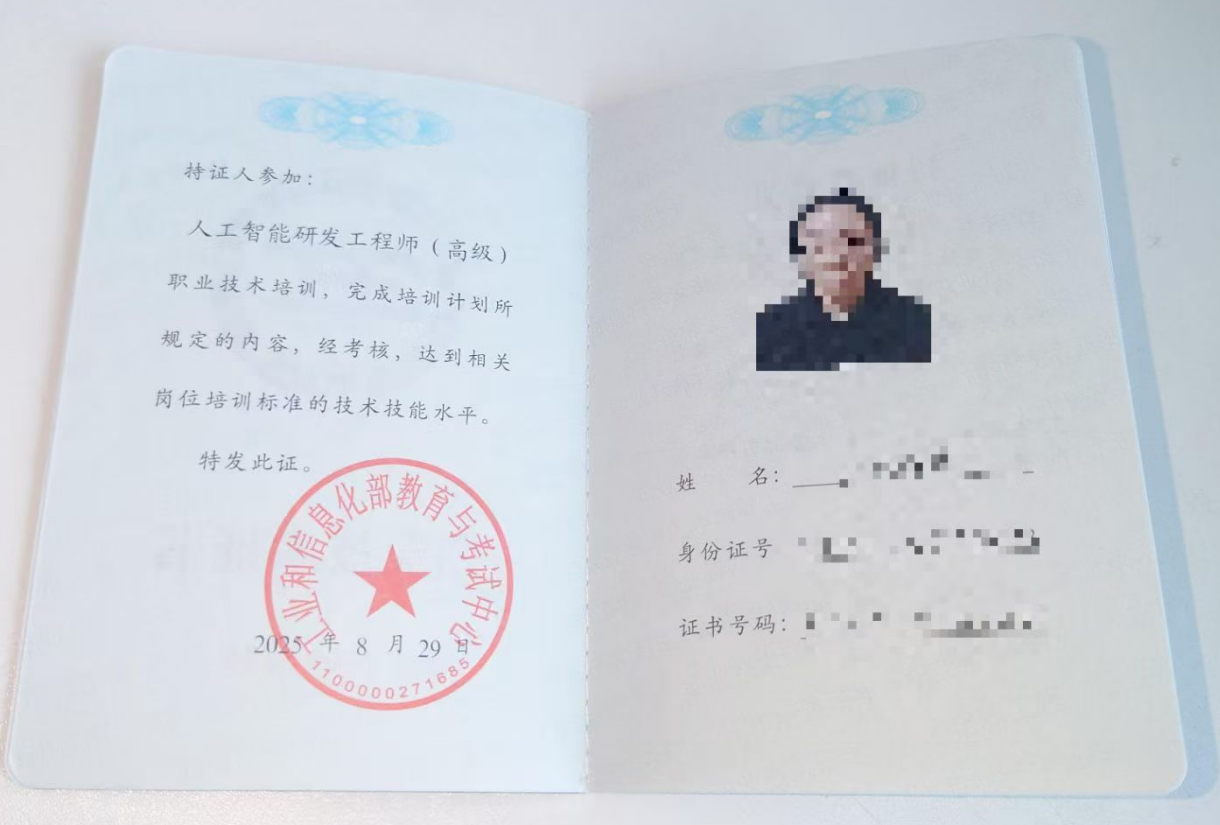 持证人参加：
人工智能研发工程师（高级）
职业技术培训，完成培训计划所
规定的内容，经考核，达到相关
岗位培训标准的技术技能水平。
特发此证。
工业和信息化部教育与考试中心
2025 年 8 月 29 日
1100000271685
姓 名：
身份证号
证书号码：